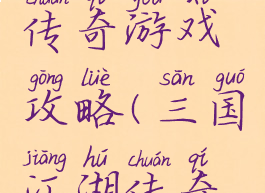 chuán qí yóu xì
传奇游戏
gōng lüè sān guó
攻略(三国
jiāng hú chuán qí
江湖传奇